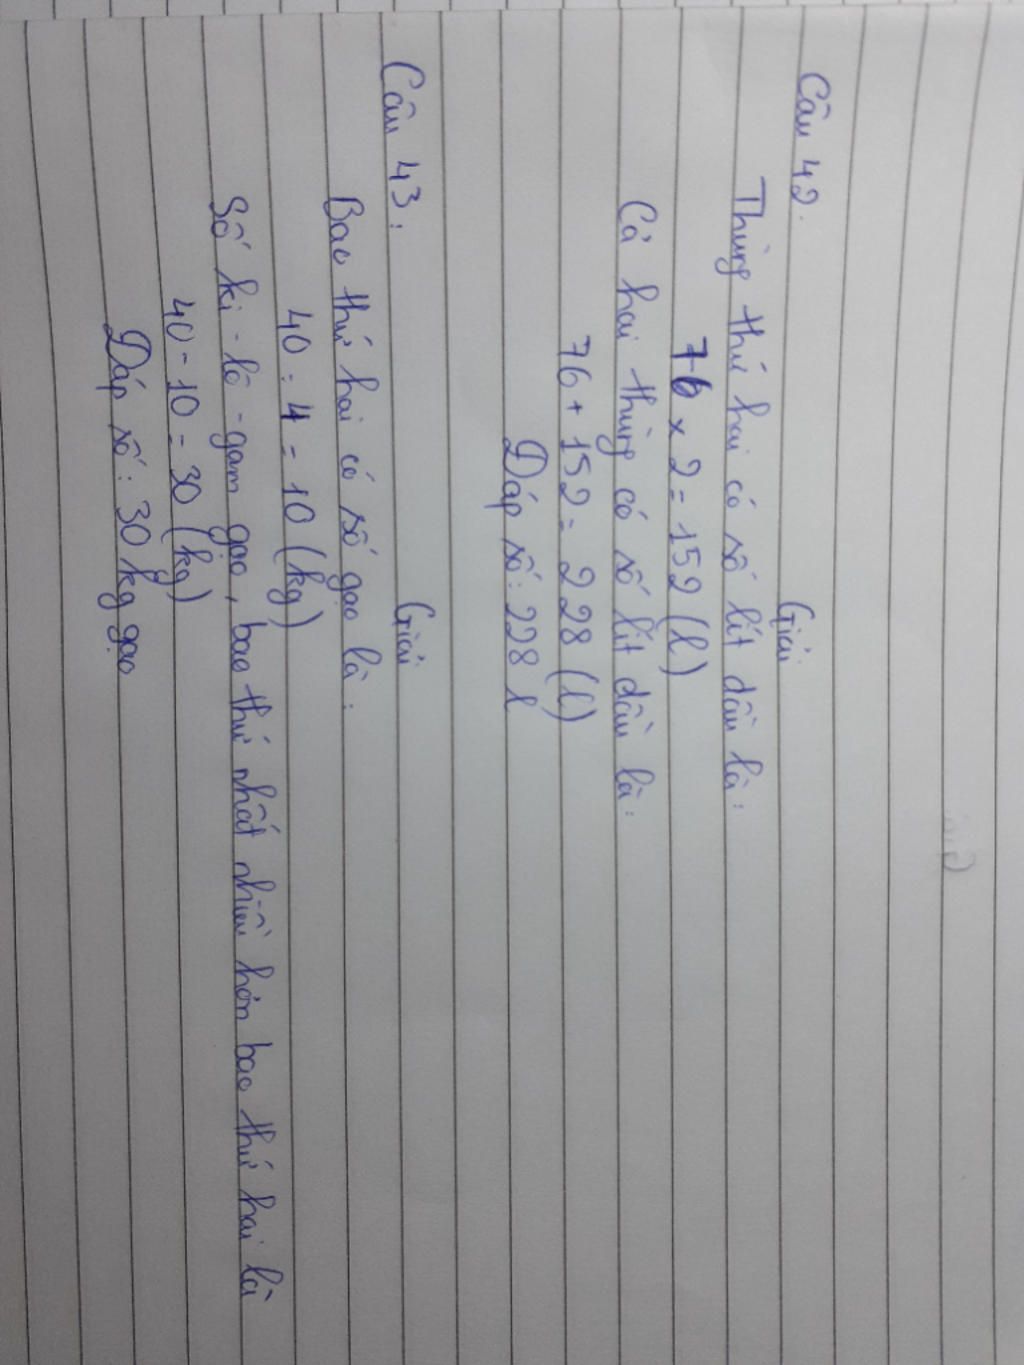 Câu 42.
Giải
Thùng thứ hai có số lít dầu là:
76 x 2 = 152 (l)
Cả hai thùng có số lít dầu là:
76 + 152 = 228 (l)
Đáp số: 228 l
Câu 43.
Giải
Bao thứ hai có số gạo là:
40 : 4 = 10 (kg)
Số ki-lô-gam gạo, bao thứ nhất nhiều hơn bao thứ hai là
40 - 10 = 30 (kg)
Đáp số: 30 kg gạo